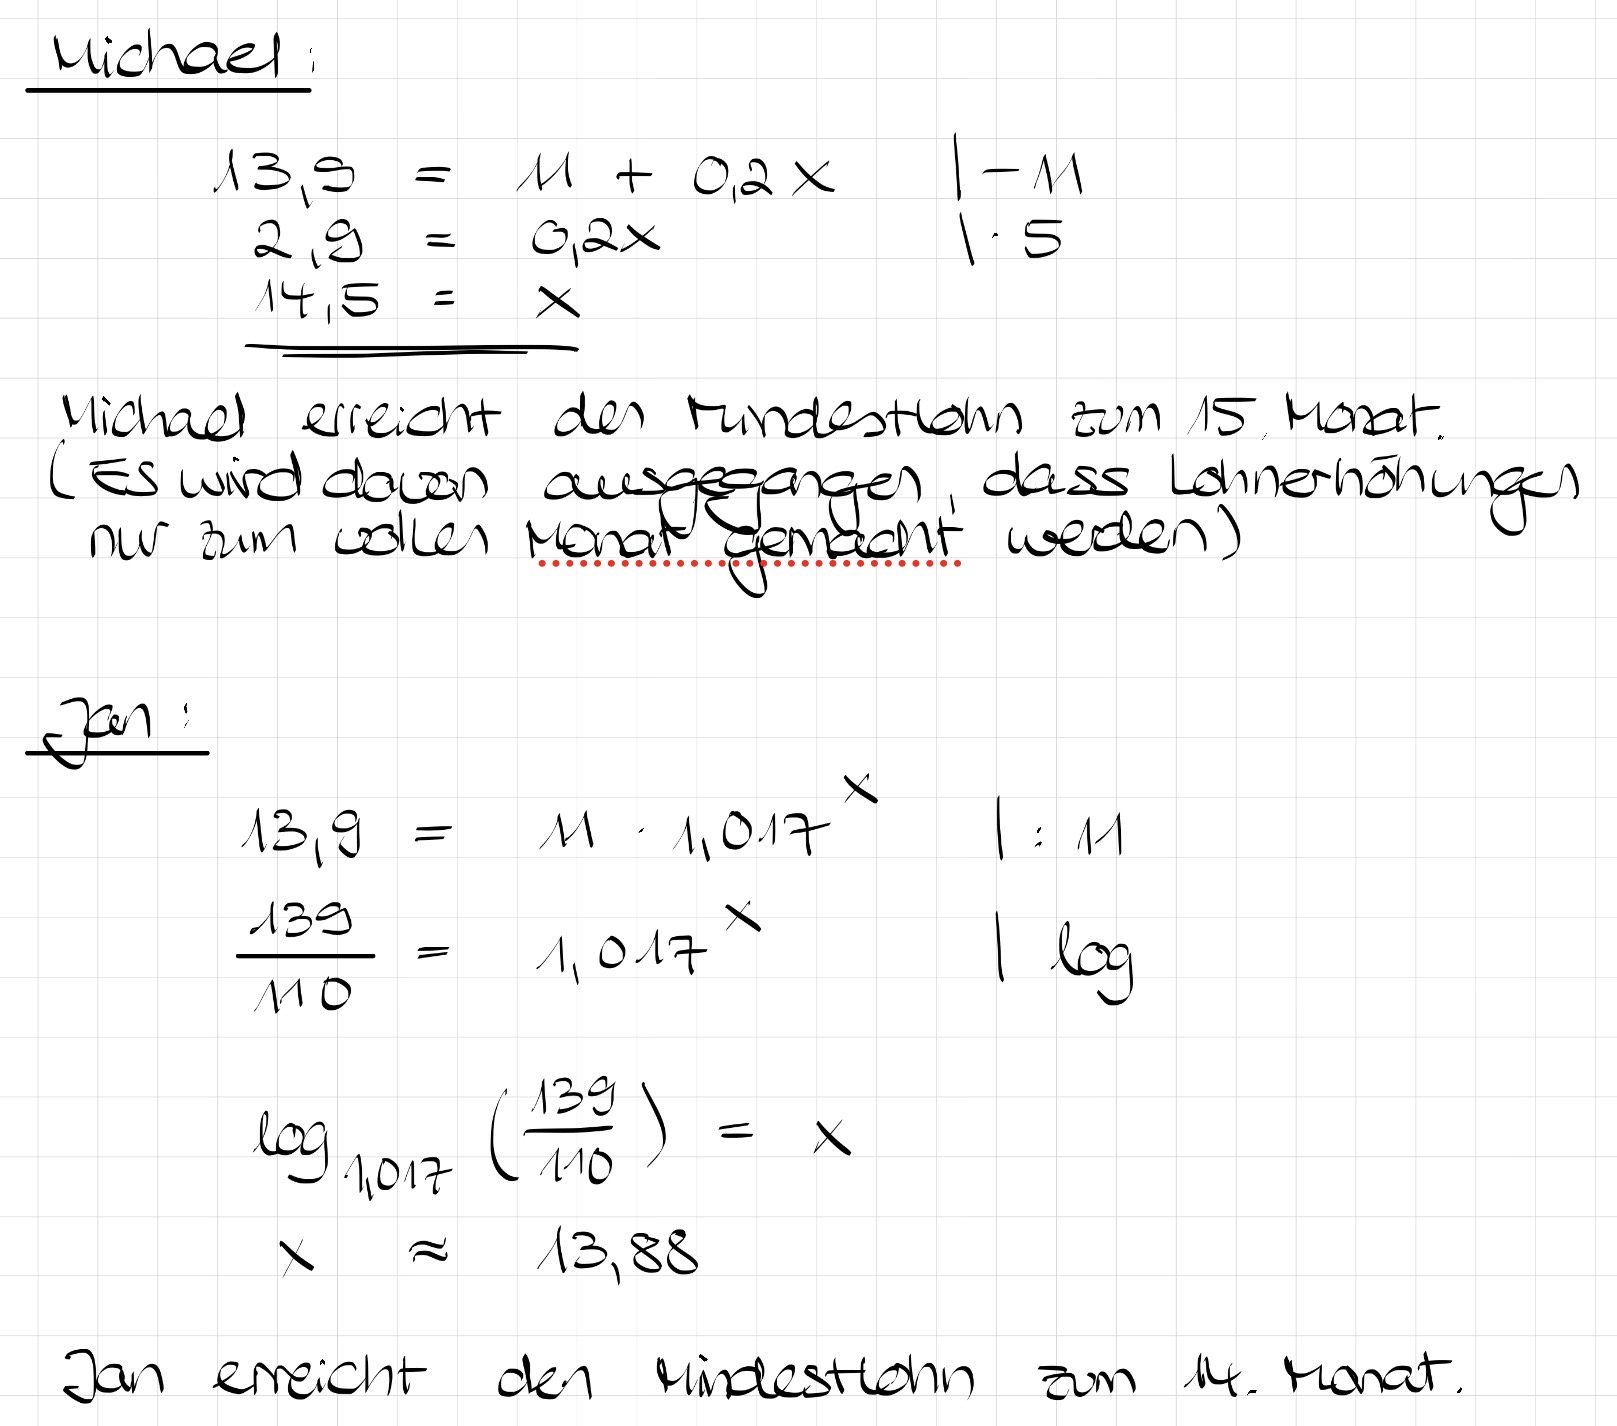 Michael:
13,9 = 11 + 0,2x | -11
2,9 = 0,2x | · 5
14,5 = x
Michael erreicht den Mindestlohn zum 15. Monat.
(Es wird davon ausgegangen, dass Lohnerhöhungen
nur zum vollen Monat gemacht werden)
Jan:
13,9 = 11 · 1,017^x | : 11
139/110 = 1,017^x | log
log_1,017 (139/110) = x
x ≈ 13,88
Jan erreicht den Mindestlohn zum 14. Monat.